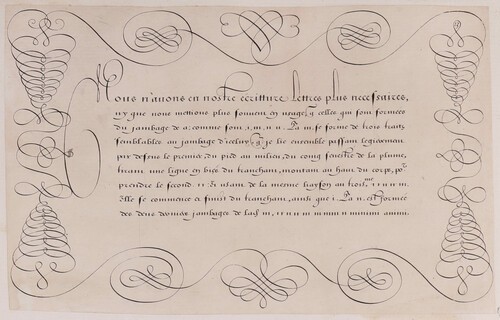 Nous n'avons en nostre ecritture lettres plus necessaires,
ny que nous mettions plus souvent en usage, q celles qui sont formees
du jambage de a: comme sont, i, m, n, u. La m, se forme de trois traits
semblables au jambage d'iceluy a, & se lie ensemble passant legerement
par dessus le premier du pied au milieu, du coing senestre de la plume,
tirant une ligne en biez du tranchant, montant au haut du corps, po.r
prendre le second. Et usant de la mesme liayson au trois.me ı ı ı n m.
Elle se commence et finist du tranchant, ainsi que i. La n, est formee
des deux derniers jambages de lad. m, ı ı n u m mum n numum amum.